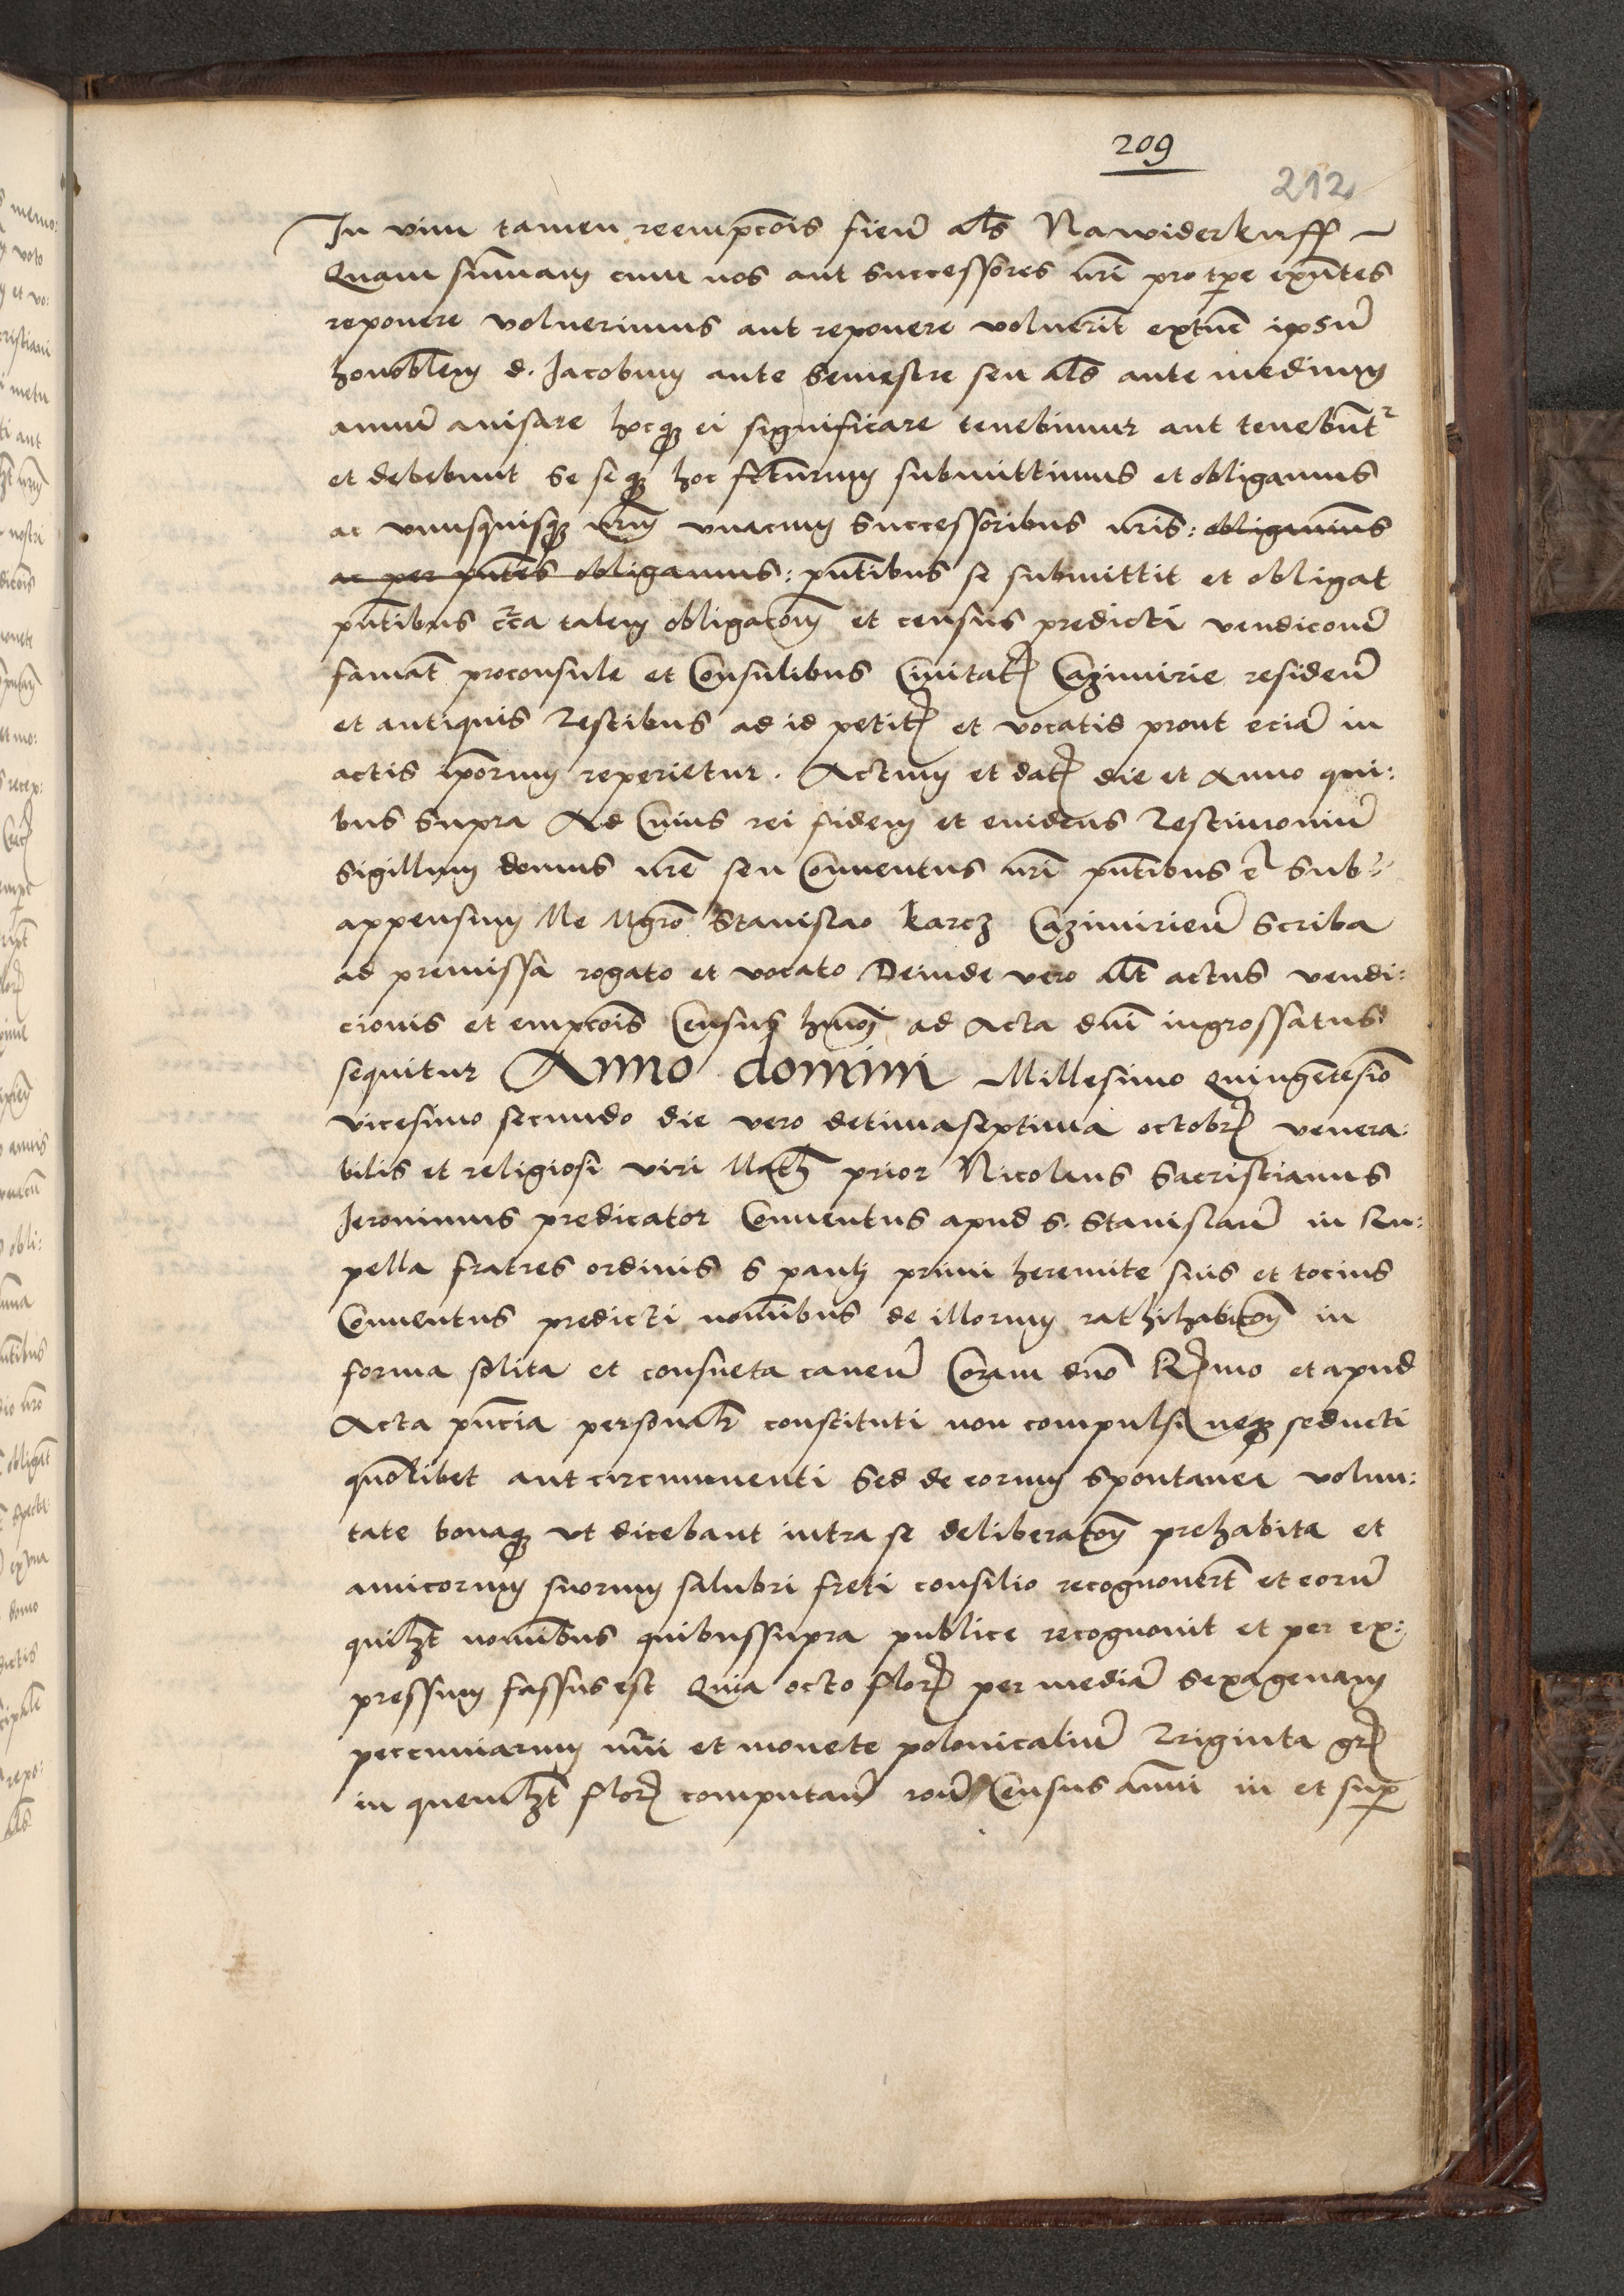 209
212
In vim tamen reempcōis fieñ als Nawiderkuff
Quam summam cum nos aut successores nrī pro tpe exñtes
reponere voluerimus aut reponere voluerīt extūc ipsū
honobilem d. Jacobum ante semestre seu als ante medium
annū auisare hocq ei significare tenebimur aut tenebūtr
et debebunt se seq hoc fcturum submittimus et obligamus
ac vnusquisq nrm vnacum successoribus nris: obligamus
ac per pntes obligamus: pntibus se submittit et obligat
pntibus talem obligacōm et census predicti vendicoñe
famat proconsule et Consulibus Ciuitat Cazimirie resideñ
et antiquis Testibus ad id petit et vocatis prout eciā in
actis ipōrum reperietur. Actum et dat die et Anno qui:
bus supra Ad Cuius rei fidem et euidens Testimoniū
Sigillum domus nrē seu Conuentus nrī pntibus ē Sub:
appensum Me Mgrō Stanislao karcz Cazimirieñ Scriba
ad premissa rogato et vocato Deinde vero alt actus vendi:
cionis et empcōis Census hmōi ad Acta dnī ingrossatus
sequitur Anno domini Millesimo Quingētesiō
vicesimo secundo die vero decimaseptima octobr venera:
bilis et religiosi viri Math prior Nicolaus Sacristianus
Jeronimus predicator Conuentus apud S. Stanislaū in Ru:
pella fratres ordinis S pauli primi heremite suis et tocius
Conuentus predicti noībus de illorum rathihabicōe in
forma solita et consueta caueñ Coram dnō Rmo et apud
Acta pñcia personalr constituti non compulsi neq seducti
quōlibet aut circumuenti Sed de eorum spontanea volun:
tate bonaq vt dicebant intra se deliberacōe prehabita et
amicorum suorum salubri freti consilio recognouert et eorū
quilzt noībus quibussupra publice recognouit et per ex:
pressum fassus est Quia octo flor per mediā Sexagenam
peccuniarum nrī et monete polonicaliū Triginta gr
in quemlzt flor computañ Census annui in et sup